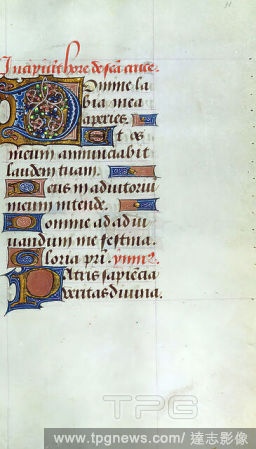 Incipiunt hore de sca cruce.
Domine la
bia mea
aperies.
Et os
meum annuciabit
laudem tuam.
Deus in adiutoriu
meum intende.
Domine ad adiu
uandum me festina.
Gloria pri. ymn9.
Patris sapiecia
veritas divina.
TPG
www.tpgnews.com/達志影像